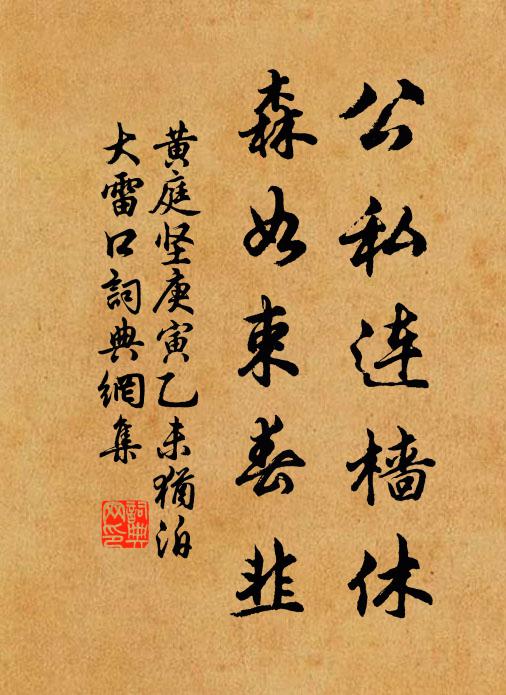 公私连樯休
森如束春韭
黄庭坚庚寅乙未犹泊
大雷口詞典網集
詞典
网印